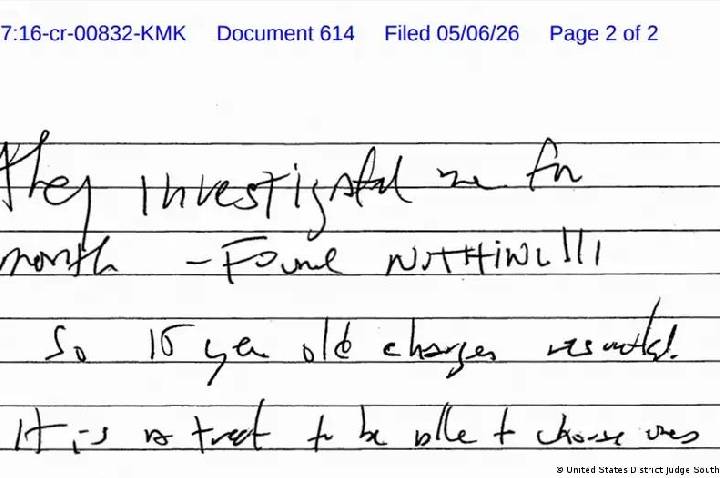 7:16-cr-00832-KMK Document 614 Filed 05/06/26 Page 2 of 2
They investigated me for
month – Found NOTHING!!!
So 15 year old charges resulted.
It is a treat to be able to choose ones
© United States District Judge South